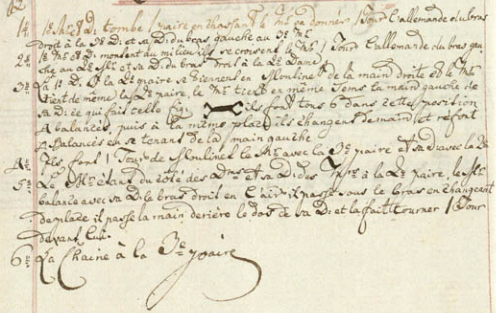 1.e Mr. et D. tombe 1 paire en chassant le Mr. sa donner 1 Tour l'allemande du bras
droit à la 3e D. et sa D. du bras gauche au 3e Mr.
2e 1e Mr. et D. montent au milieu ils se croisent le Mr. 1 Tour l'allemande du bras gau
che au 2e Mr. et sa D. du bras droit à la 2e Dame
3e La 1e D. et la 2e paire se tiennent en Moulinet de la main droite et le Mr.
tient de même la 3e paire, le Mr. tient en même tems la main gauche de
sa D. ce qui fait cette fig. ils font tous 6 dans cette position
4 balancés, puis à la même place ils changent de main et refont
4 Balancés en se tenans de la main gauche
4e Ils font 1 Tour de Moulinet le Mr. avec la 3e paire et sa D. avec la 2e
5e Le Mr. étant du côté des D. et sa D. des Mrs. à la 2e paire, le Mr.
balance avec sa D. le bras droit en l'air il passe sous le bras en changeant
de place il passe la main derière le dos de sa D. et la fait tourner 1 Tour
devant lui.
6e La Chaine à la 3e paire